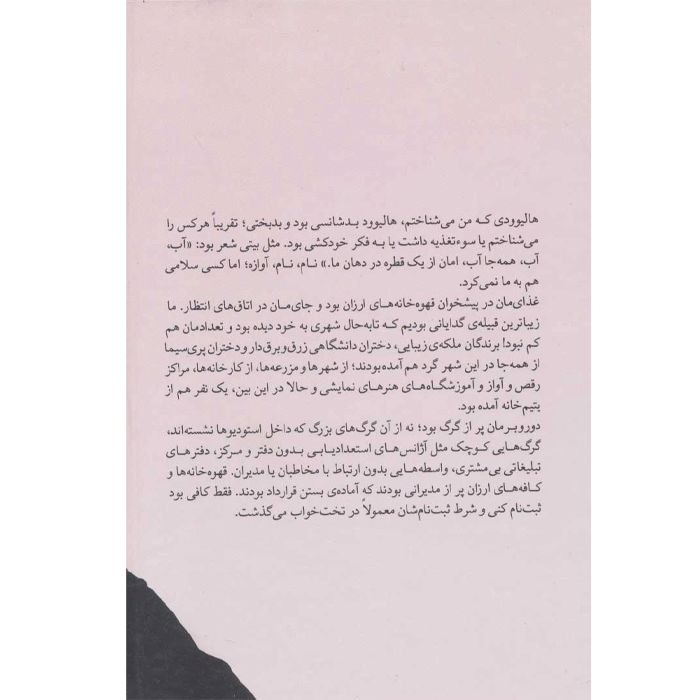 هالیوودی که من می‌شناختم، هالیوود بدشانسی بود و بدبختی؛ تقریباً هرکس را
می‌شناختم یا سوءتغذیه داشت یا به فکر خودکشی بود. مثل بیتی شعر بود: «آب،
آب، همه‌جا آب، امان از یک قطره در دهان ما.» نام، نام، آوازه؛ اما کسی سلامی
هم به ما نمی‌کرد.
غذای‌مان در پیشخوان قهوه‌خانه‌های ارزان بود و جای‌مان در اتاق‌های انتظار. ما
زیباترین قبیله‌ی گدایانی بودیم که تابه‌حال شهری به خود دیده بود و تعدادمان هم
کم نبود! برندگان ملکه‌ی زیبایی، دختران دانشگاهی زرق‌وبرق‌دار و دختران پری‌سیما
از همه‌جا در این شهر گرد هم آمده‌بودند؛ از شهرها و مزرعه‌ها، از کارخانه‌ها، مراکز
رقص و آواز و آموزشگاه‌های هنرهای نمایشی و حالا در این بین، یک نفر هم از
یتیم‌خانه آمده بود.
دوروبرمان پر از گرگ بود؛ نه از آن گرگ‌های بزرگ که داخل استودیوها نشسته‌اند،
گرگ‌هایی کوچک مثل آژانس‌های استعدادیابی بدون دفتر و مرکز، دفترهای
تبلیغاتی بی‌مشتری، واسطه‌هایی بدون ارتباط با مخاطبان یا مدیران. قهوه‌خانه‌ها و
کافه‌های ارزان پر از مدیرانی بودند که آماده‌ی بستن قرارداد بودند. فقط کافی بود
ثبت‌نام کنی و شرط ثبت‌نام‌شان معمولاً در تخت‌خواب می‌گذشت.